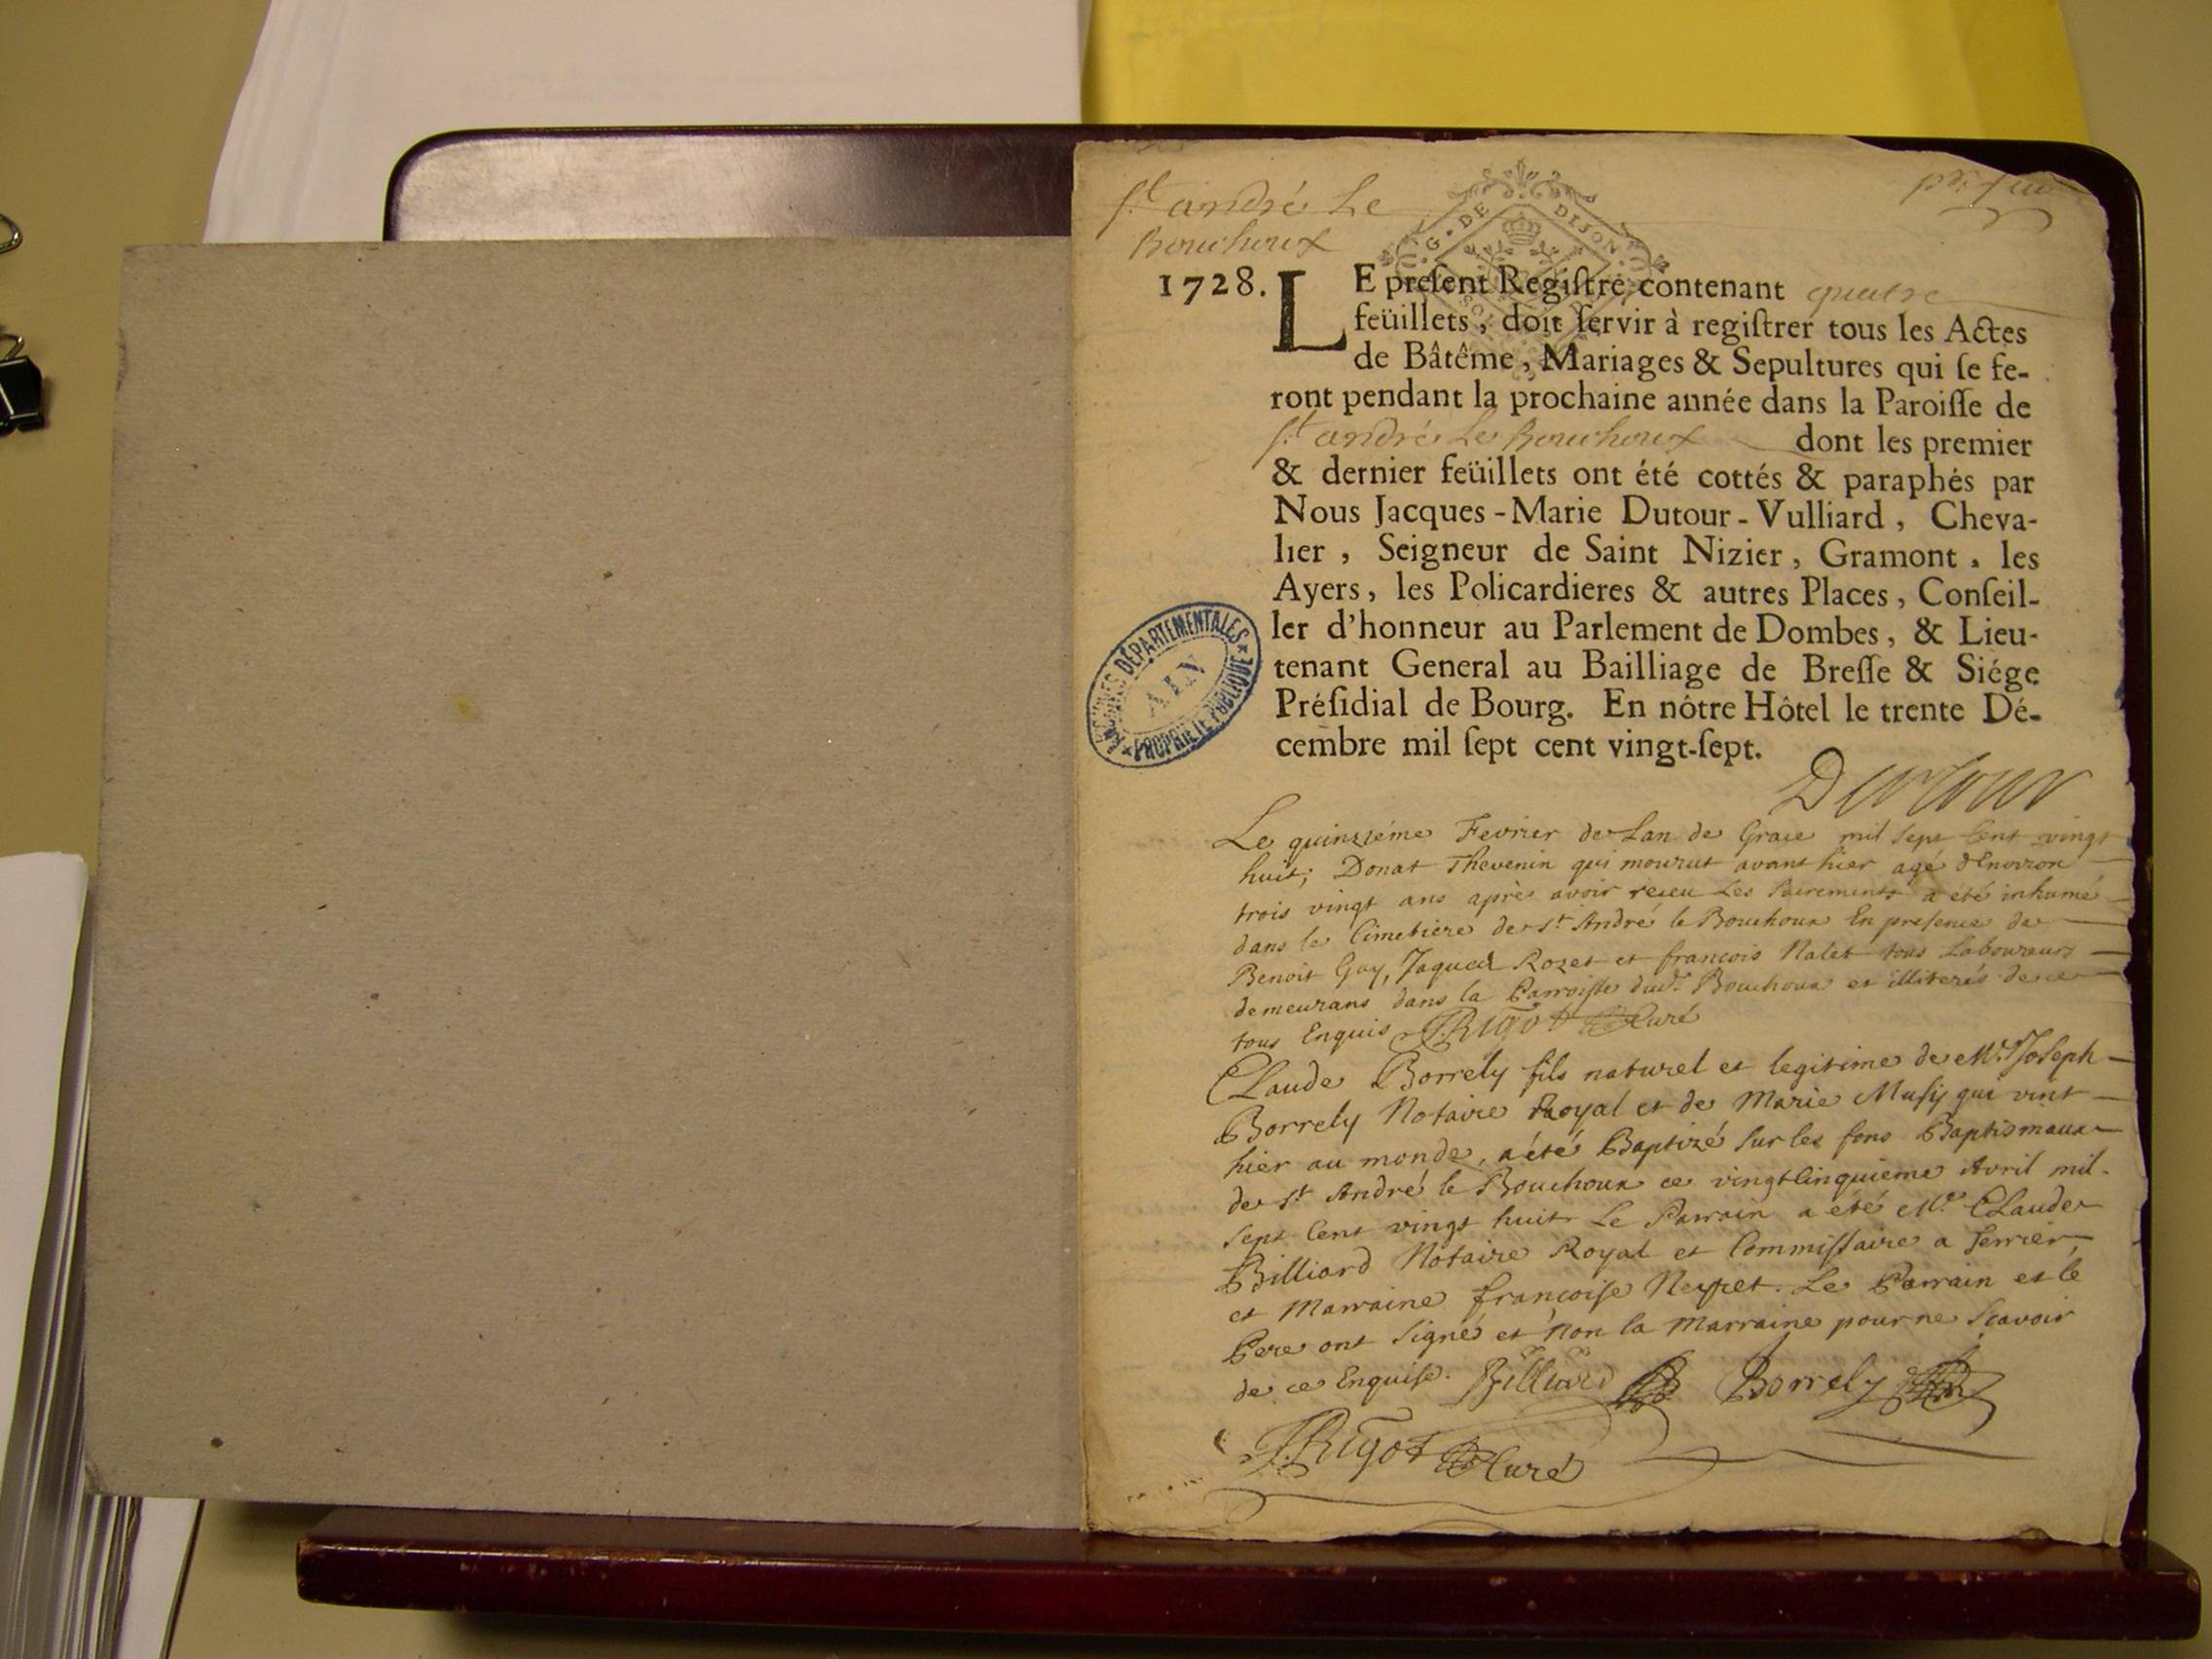 St andré Le
Bouchoux
G. DE DIJON
1728. LE preſent Regiſtre contenant quatre
feüillets, doit ſervir à regiſtrer tous les Actes
de Bâtême, Mariages & Sepultures qui ſe fe-
ront pendant la prochaine année dans la Paroiſſe de
St andré Le Bouchoux dont les premier
& dernier feüillets ont été cottés & paraphés par
Nous Jacques-Marie Dutour-Vulliard, Cheva-
lier, Seigneur de Saint Nizier, Gramont, les
Ayers, les Policardieres & autres Places, Conſeil-
ler d'honneur au Parlement de Dombes, & Lieu-
tenant General au Bailliage de Breſſe & Siége
Préſidial de Bourg. En nôtre Hôtel le trente Dé-
cembre mil ſept cent vingt-ſept.
ARCHIVES DÉPARTEMENTALES
AIN
PROPRIÉTÉ PUBLIQUE
Dutour
Le quinziéme Fevrier de Lan de Grace mil Sept Cent vingt
huit; Donat Thevenin qui mourut avant hier agé d'Environ
trois vingt ans aprés avoir reçeu Les Sacrements a été inhumé
dans le Cimetiere de St André le Bouchoux En presence de
Benoit Guy, Jaques Rozet et françois Nalet tous Laboureurs
demeurans dans la Parroisse dud. Bouchoux et illiterés de ce
tous Enquis JRigot Curé
Claude Borrely fils naturel et legitime de Mr. Joseph
Borrely Notaire Royal et de Marie Musy qui vint
hier au monde, a été Baptizé Sur les fons Baptismaux
de St André le Bouchoux ce vingt Cinquieme Avril mil
Sept Cent vingt huit Le Parrain a été Mr. Claude
Billiard Notaire Royal et Commissaire a Terrier
et Marraine françoise Neyret. Le Parrain et le
Pere ont Signé et Non la Marraine pour ne Scavoir
de ce Enquise. Billiard Borrely
JRigot Curé